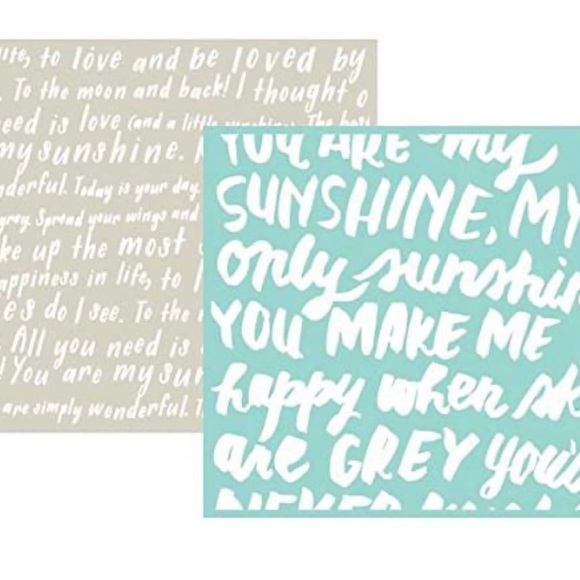 life, to love and be loved by
. To the moon and back! I thought o
eed is love (and a little sunshine. The best
my sunshine.
nderful. Today is your day.
grey. Spread your wings and
ke up the most
appiness in life, to l
es do I see. To the
. All you need is
! You are my sun
are simply wonderful. T
YOU ARE my
SUNSHINE, MY
only sunshin
YOU MAKE ME
happy when sk
are GREY you'll
NEVER